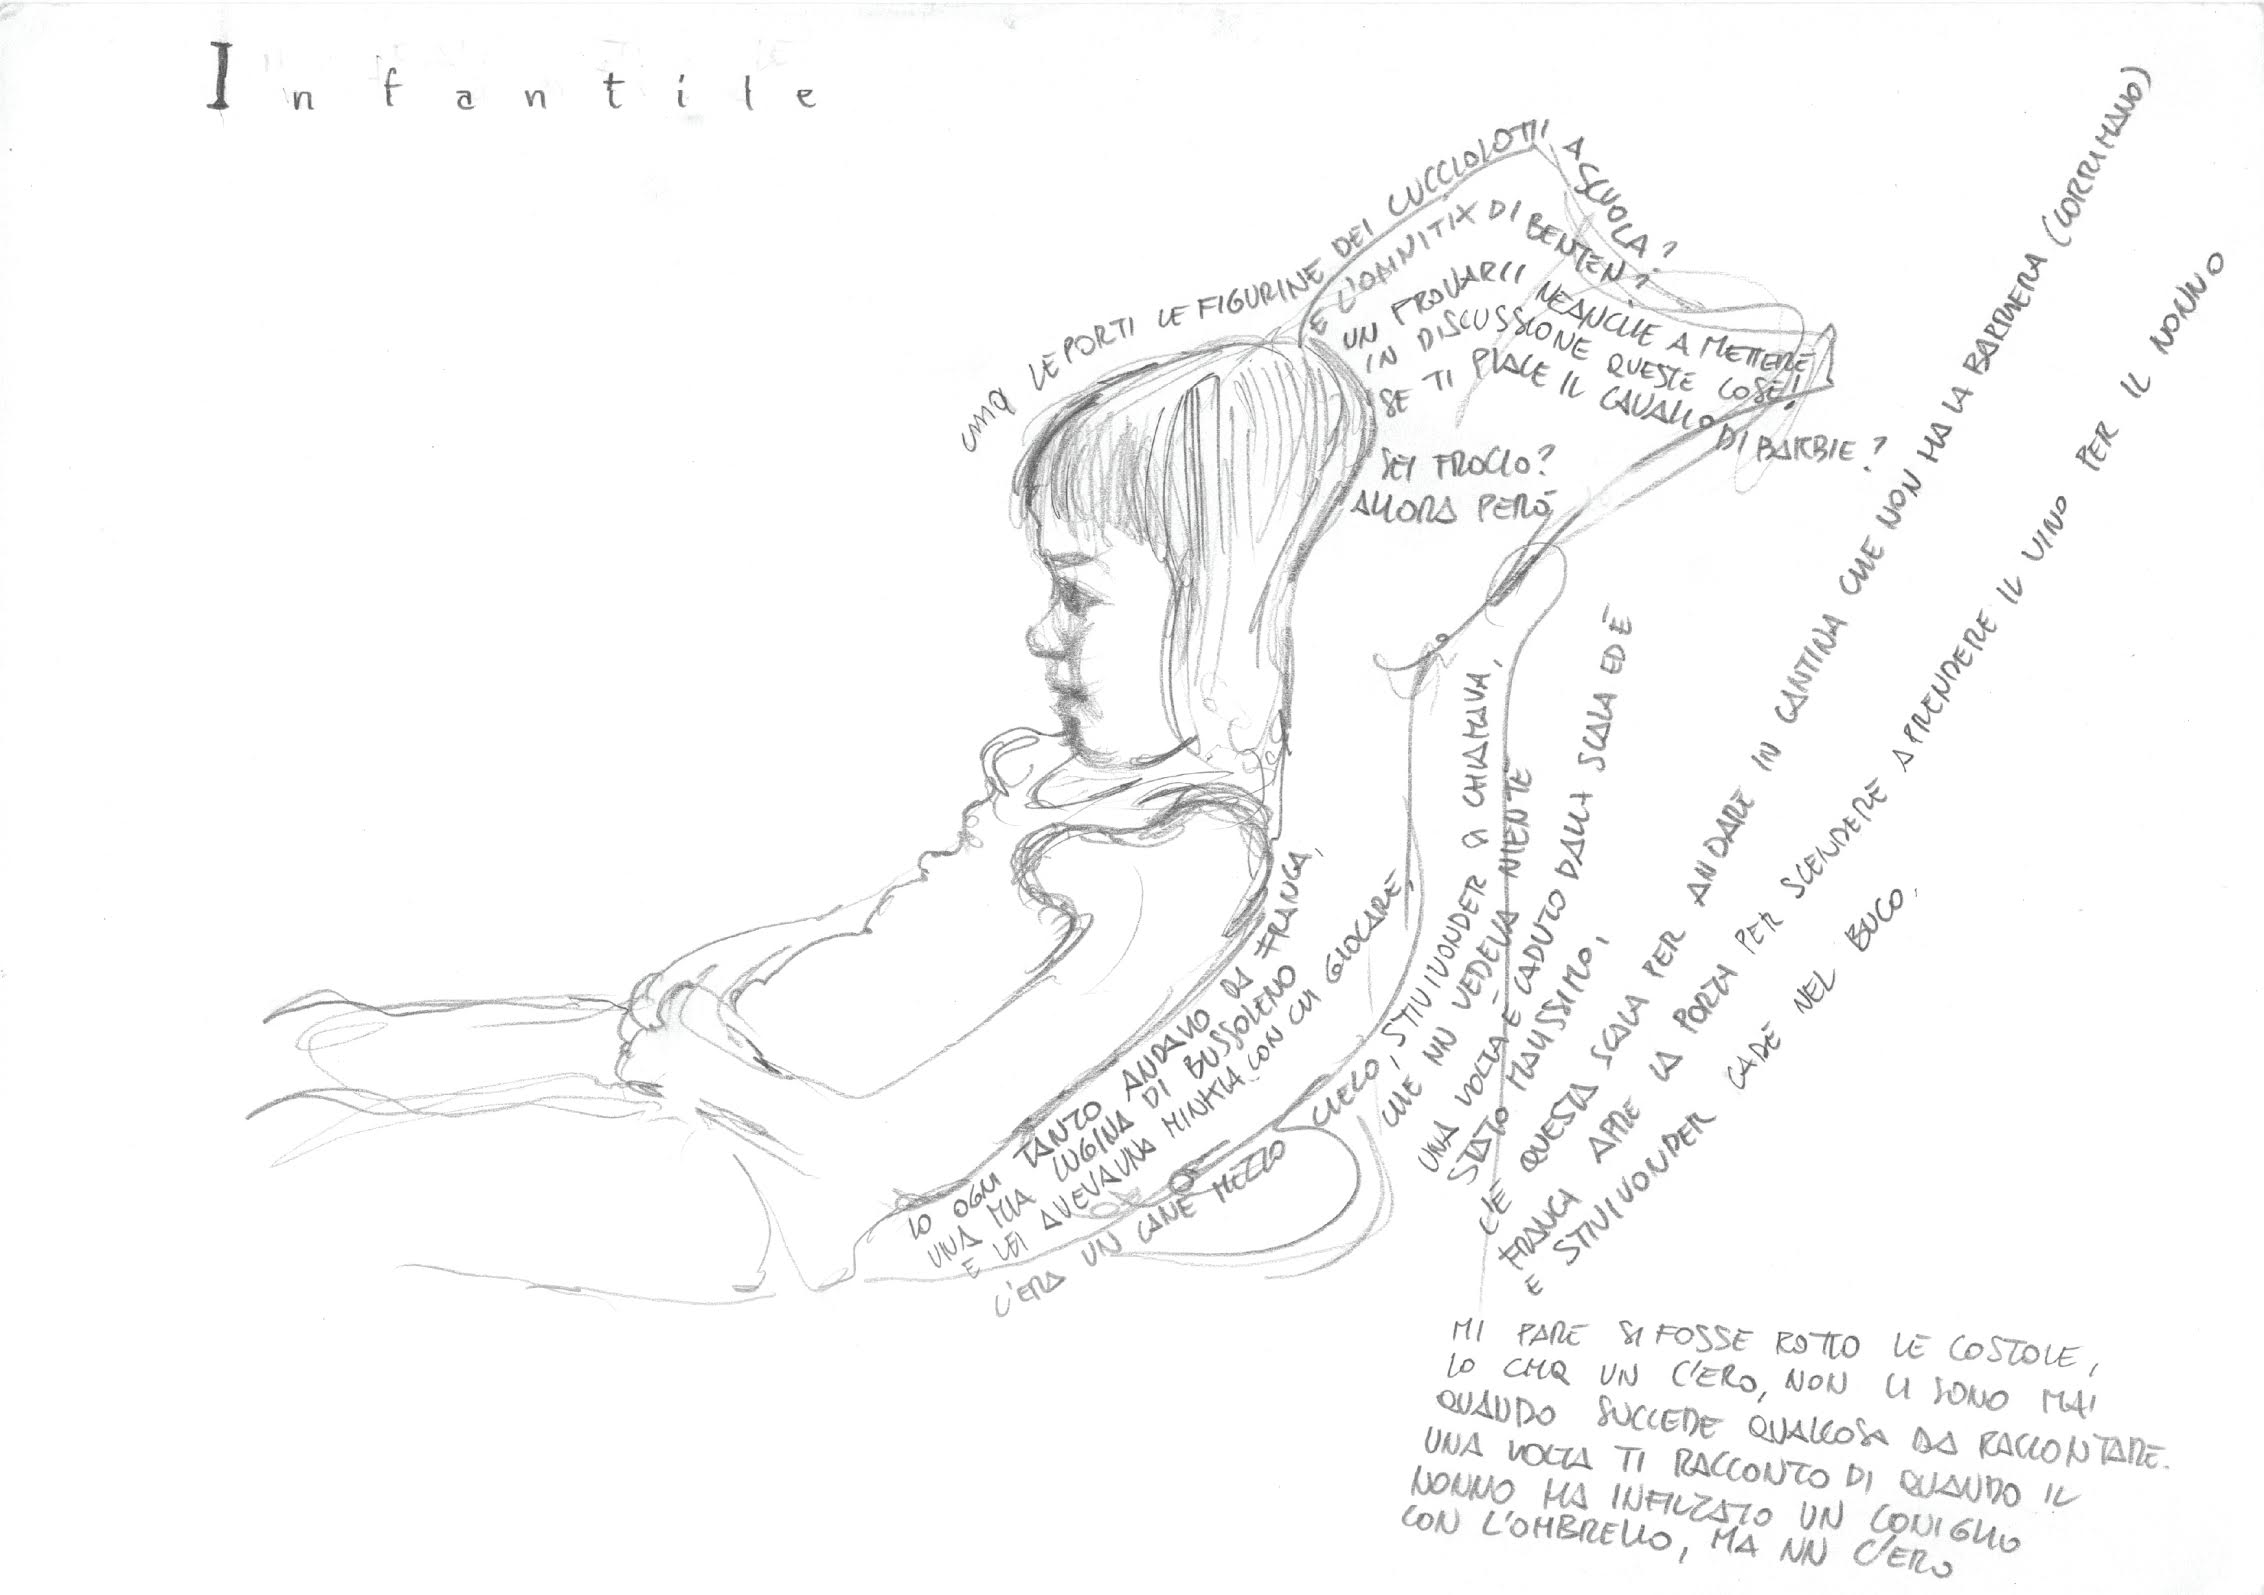 Infantile
CMQ LE PORTI LE FIGURINE DEI CUCCIOLOTTI A SCUOLA?
E L'OMNITIX DI BENTEN?
UN PROVARCI NEANCHE A METTERE
IN DISCUSSIONE QUESTE COSE!
SE TI PIACE IL CAVALLO DI BARBIE?
SEI FROCIO?
ALLORA PERÒ
IO OGNI TANTO ANDAVO DA FRANCA,
UNA MIA CUGINA DI BUSSOLENO
E LEI AVEVA UNA MINKIA CON CUI GIOCARE,
C'ERA UN CANE MEZZO CIECO, STIVIUONDER SI CHIAMAVA,
CHE NN VEDEVA NIENTE
UNA VOLTA È CADUTO DALLA SCALA ED È
STATO MALISSIMO,
C'È QUESTA SCALA PER ANDARE IN CANTINA CHE NON HA LA BARDERA (CORRIMANO)
FRANCA APRE LA PORTA PER SCENDERE A PRENDERE IL VINO PER IL NONNO
E STIVIVONDER CADE NEL BUCO.
MI PARE SI FOSSE ROTTO LE COSTOLE,
IO CMQ UN C'ERO, NON CI SONO MAI
QUANDO SUCCEDE QUALCOSA DA RACCONTARE.
UNA VOLTA TI RACCONTO DI QUANDO IL
NONNO HA INFILZATO UN CONIGLIO
CON L'OMBRELLO, MA NN C'ERO